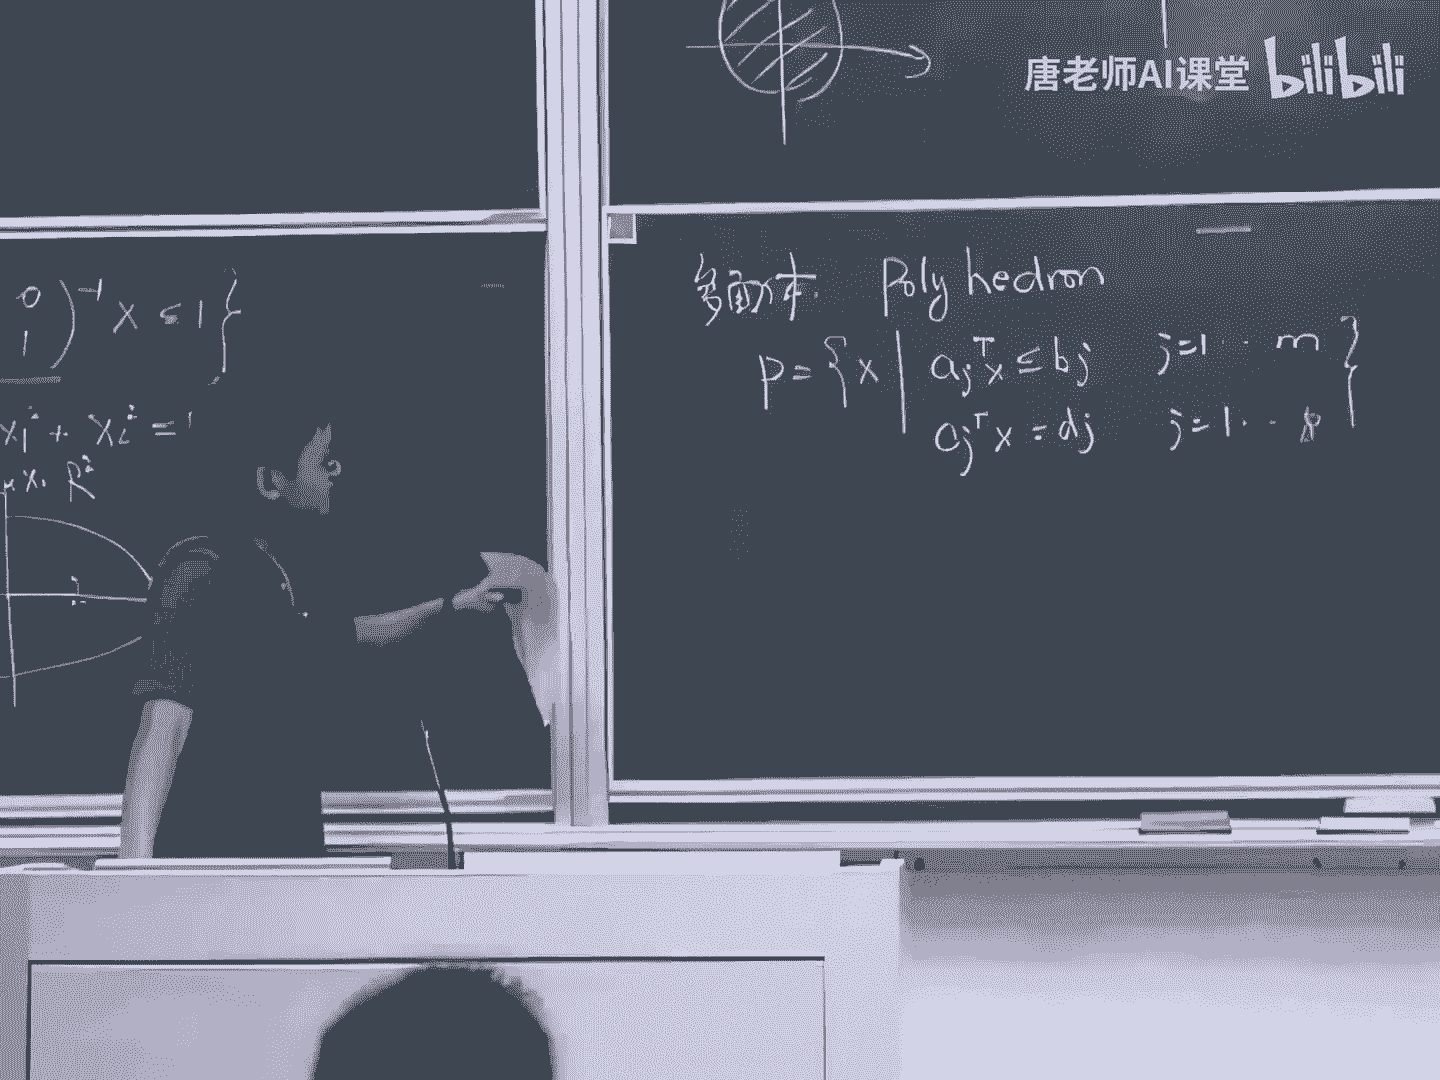 唐老师AI课堂 bilibili
0
1 )⁻¹ x ≤ 1 }
x₁² + x₂² = 1
x₁ R²
多面体. Polyhedron
P = { x | aⱼᵀx ≤ bⱼ j=1 ·· m }
cⱼᵀx = dⱼ j=1 ·· p